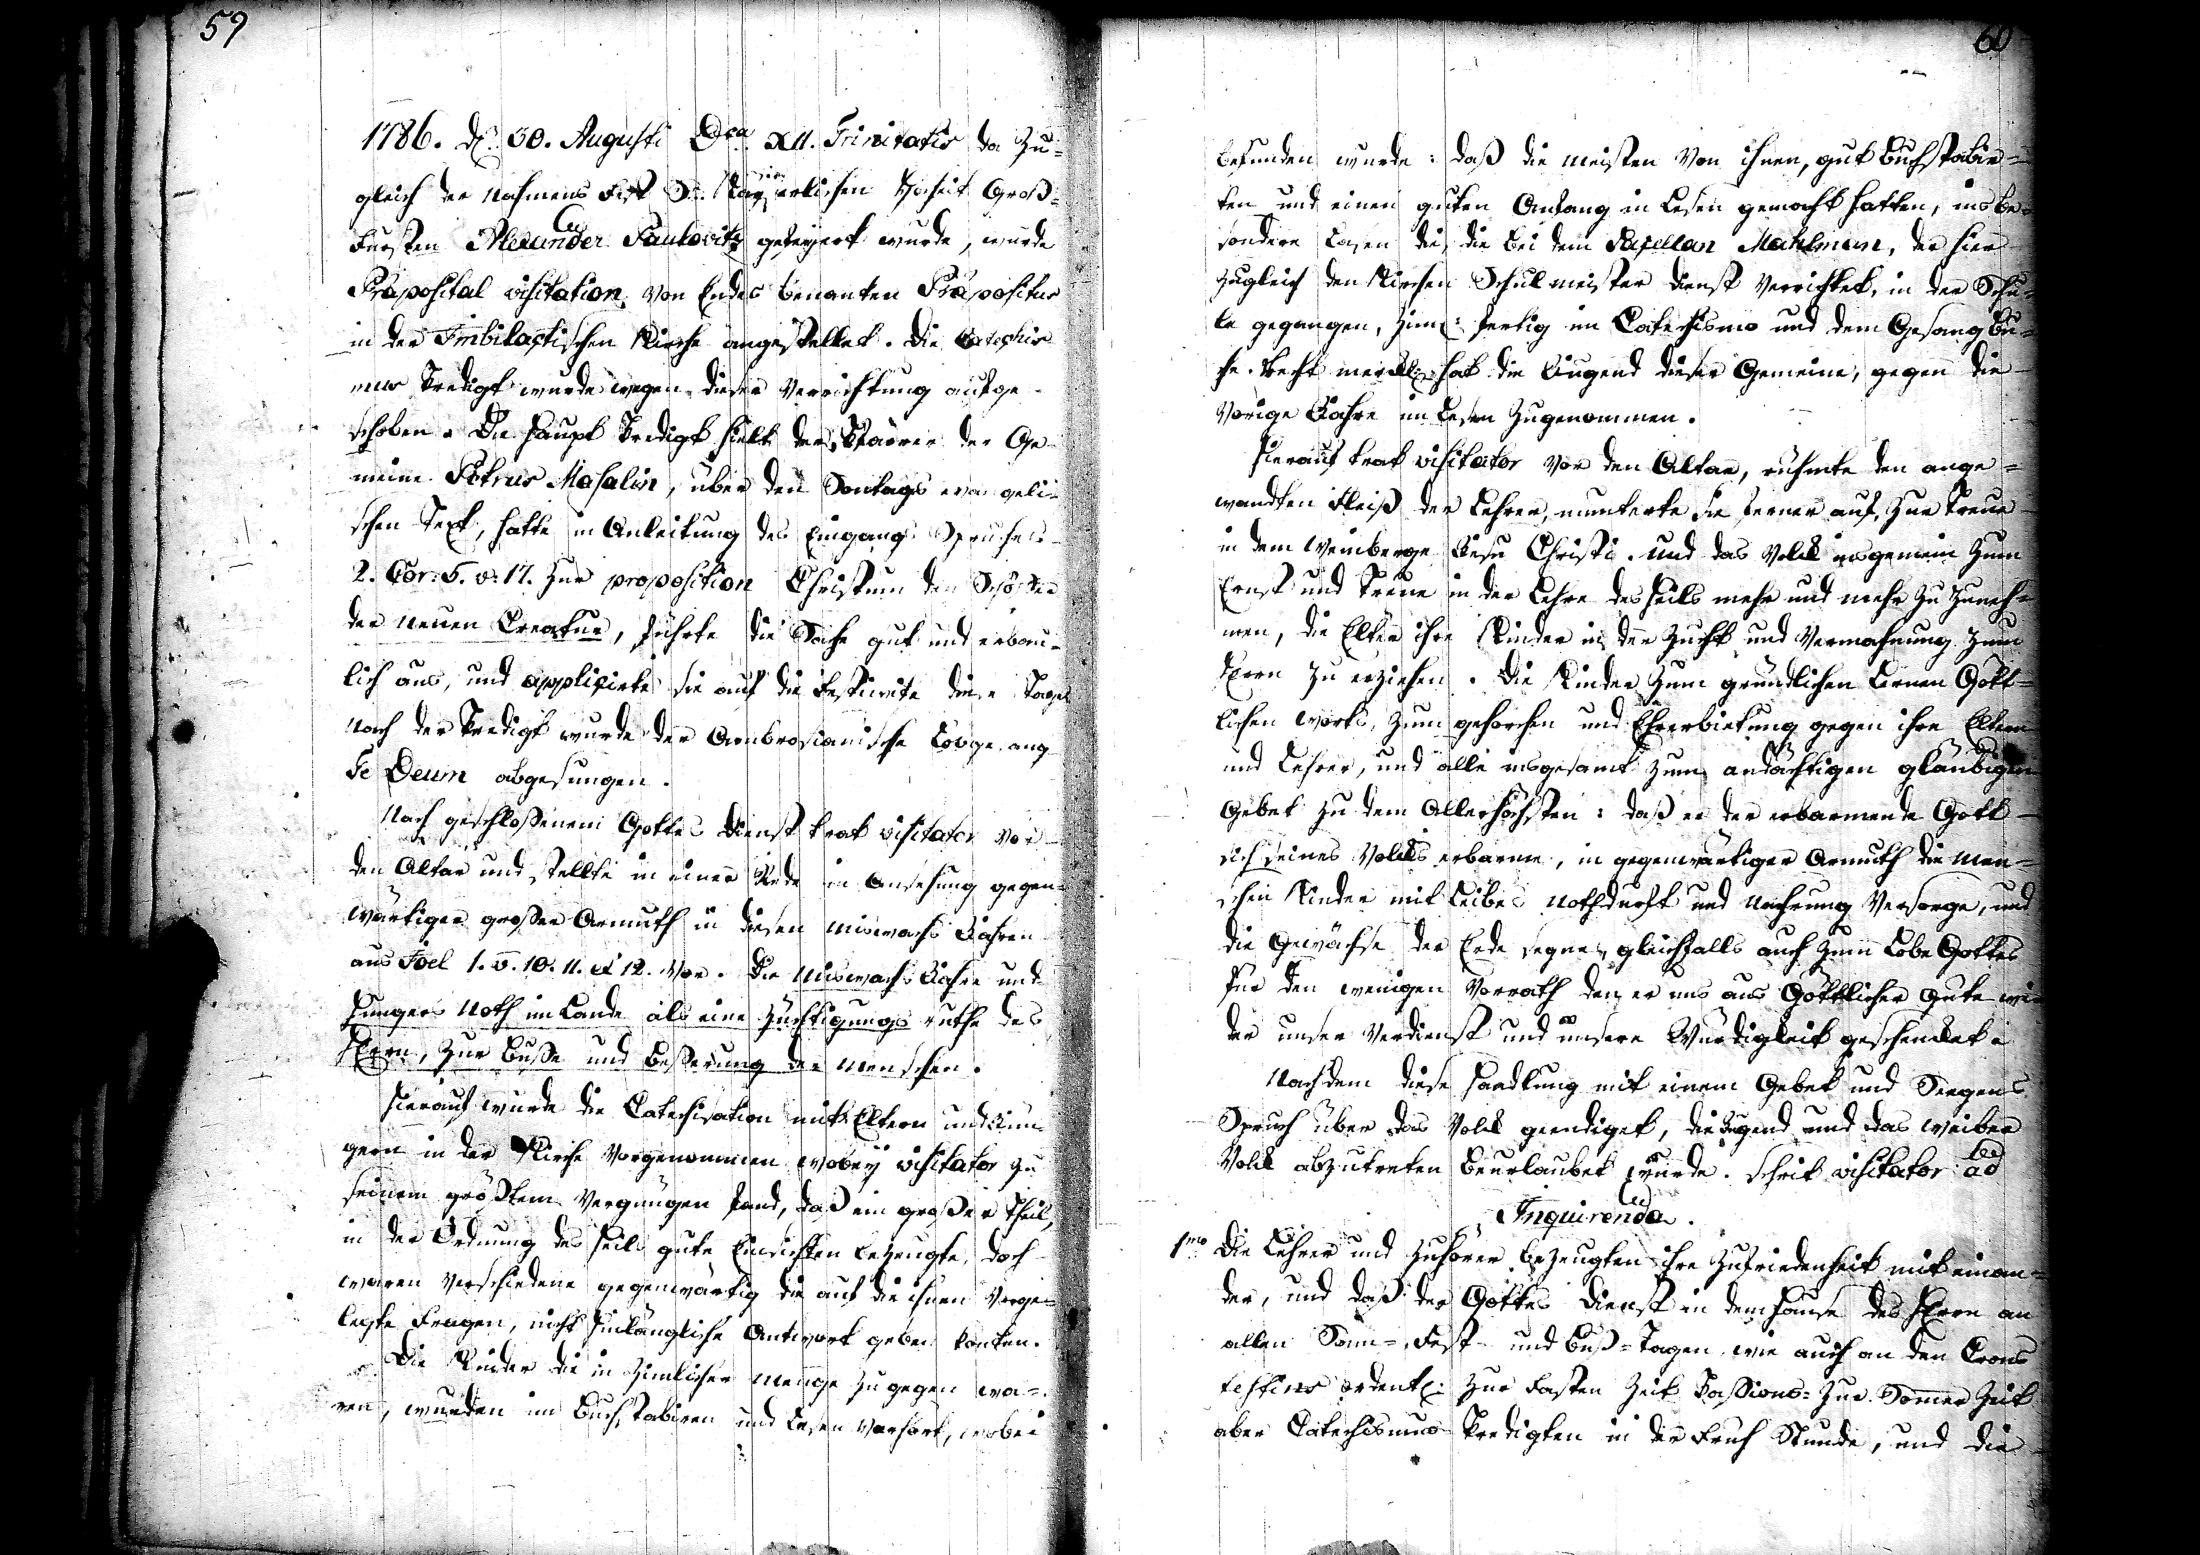 59
1786. d. 30. Augusti Dca XII. Trinitatis da zu=
gleich der Nahmens Fest Sr. Kayserlichen Hoheit Groß=
Fursten Alexander Paulovitz gefeyert wurde, wurde
Præposital visitation von Endes benanten Præpositus
in der Imbilaxtischen Kirche angestellet. Die Catechis
mus Predigt wurde wegen dieser Verrichtung aufge
schoben. Die Haupt Predigt hielt der Pfarrer der Ge
meine Petrus Masalin, über den Sontags evangeli=
schen Text, hatte in Anleitung des Eingangs Spruches
2. Cor: 5. v. 17. zur proposition Christum den Schöpfer
der neuen Creatur, führte die Sache gut und erbau=
lich aus, und applicirte sie auf die Festivite dieses Tages
Nach der Predigt wurde der Ambrosianische Lobgesang
Te Deum abgesungen.
Nach geschloßenem Gottes Dienst trat visitator vor
den Altar und stellte in einer Rede in Ansehung gegen=
wärtiger großer Armuth in diesen miswachs Jahren
aus Joel 1. v. 10. 11. et 12. vor. Die Miswachs Jahre und
Hungers Noth im Lande als eine Züchtigungs ruthe des
Herrn, zur Buße und Beßerung der Menschen.
Hierauf wurde die Catechisation mit Eltern und Jün
gern in der Kirche vorgenommen wobey visitator zu
seinem größtem Vergnügen fand, daß ein großer Theil
in der Ordnung des Heils gute Einsichten bezeugte, doch
waren verschiedene gegenwärtig die auf die ihnen vorge=
legte Fragen, nicht hinlängliche Antwort geben konten.
Die Kinder die in zimlicher Menge zugegen wa=
ren, wurden im Buchstabiren und Lesen verhört, wobei
60
befunden wurde: daß die meisten von ihnen, gut buchstabir=
ten und einen guten Anfang in Lesen gemacht hatten, insbe=
sondere Lasen die, die bei dem Capellan Mahlman, der hier
zugleich den Kirchen Schulmeister Dienst verrichtet, in der Schu=
le gegangen, ziml: fertig im Catechismo und dem Gesang bu=
che. Recht merckl: hat die Jugend dieser Gemeine, gegen die
vorige Jahre im Lesen zugenommen.
Hierauf trat visitator vor den Altar, rühmte den ange=
wandten Fleiß der Lehrer, munterte sie ferner auf, zur Treue
in dem Weinberge Jesu Christi. und das Volck insgemein zum
Ernst und Treue in der Lehre des Heils mehr und mehr zu zuneh=
men, die Elter ihre Kinder in der Zucht und Vermahnung zum
Herrn zu erziehen. Die Kinder zum gründlichen Lernen Gött=
lichen Worts, zum gehorchen und Ehrerbietung gegen ihre Eltern
und Lehrer, und alle insgesamt zum andächtigen gläubigen
Gebet zu dem Allerhöchsten: daß er der erbarmende Gott
sich seines Volcks erbarme, in gegenwärtiger Armuth die Men=
schen Kinder mit Leibes Nothdurft und Nahrung versorge, und
die Gewächse der Erde segne, gleichfalls auch zum Lobe Gottes
für den wenigen Vorrath den er uns aus Göttlicher Gute wi
der unser Verdienst und unsere Würdigkeit geschencket.
Nachdem diese Handlung mit einem Gebet und Seegens
Spruch über das Volck geendiget, die Jugend und das Weiber
Volck abzutreten beurlaubet wurde. schrit visitator ad
Inquirenda.
1mo Die Lehrer und Zuhörer bezeugten ihre Zufriedenheit mit einan=
der, und daß der Gottes Dienst in dem Hause des Herrn an
allen Sonn=, Fest- und Buß=Tagen wie auch an den Crons
festins ordentl: zur Fasten Zeit Passions= zur Sommer Zeit
aber Catechismus Predigten in der Fruh Stunde, und die